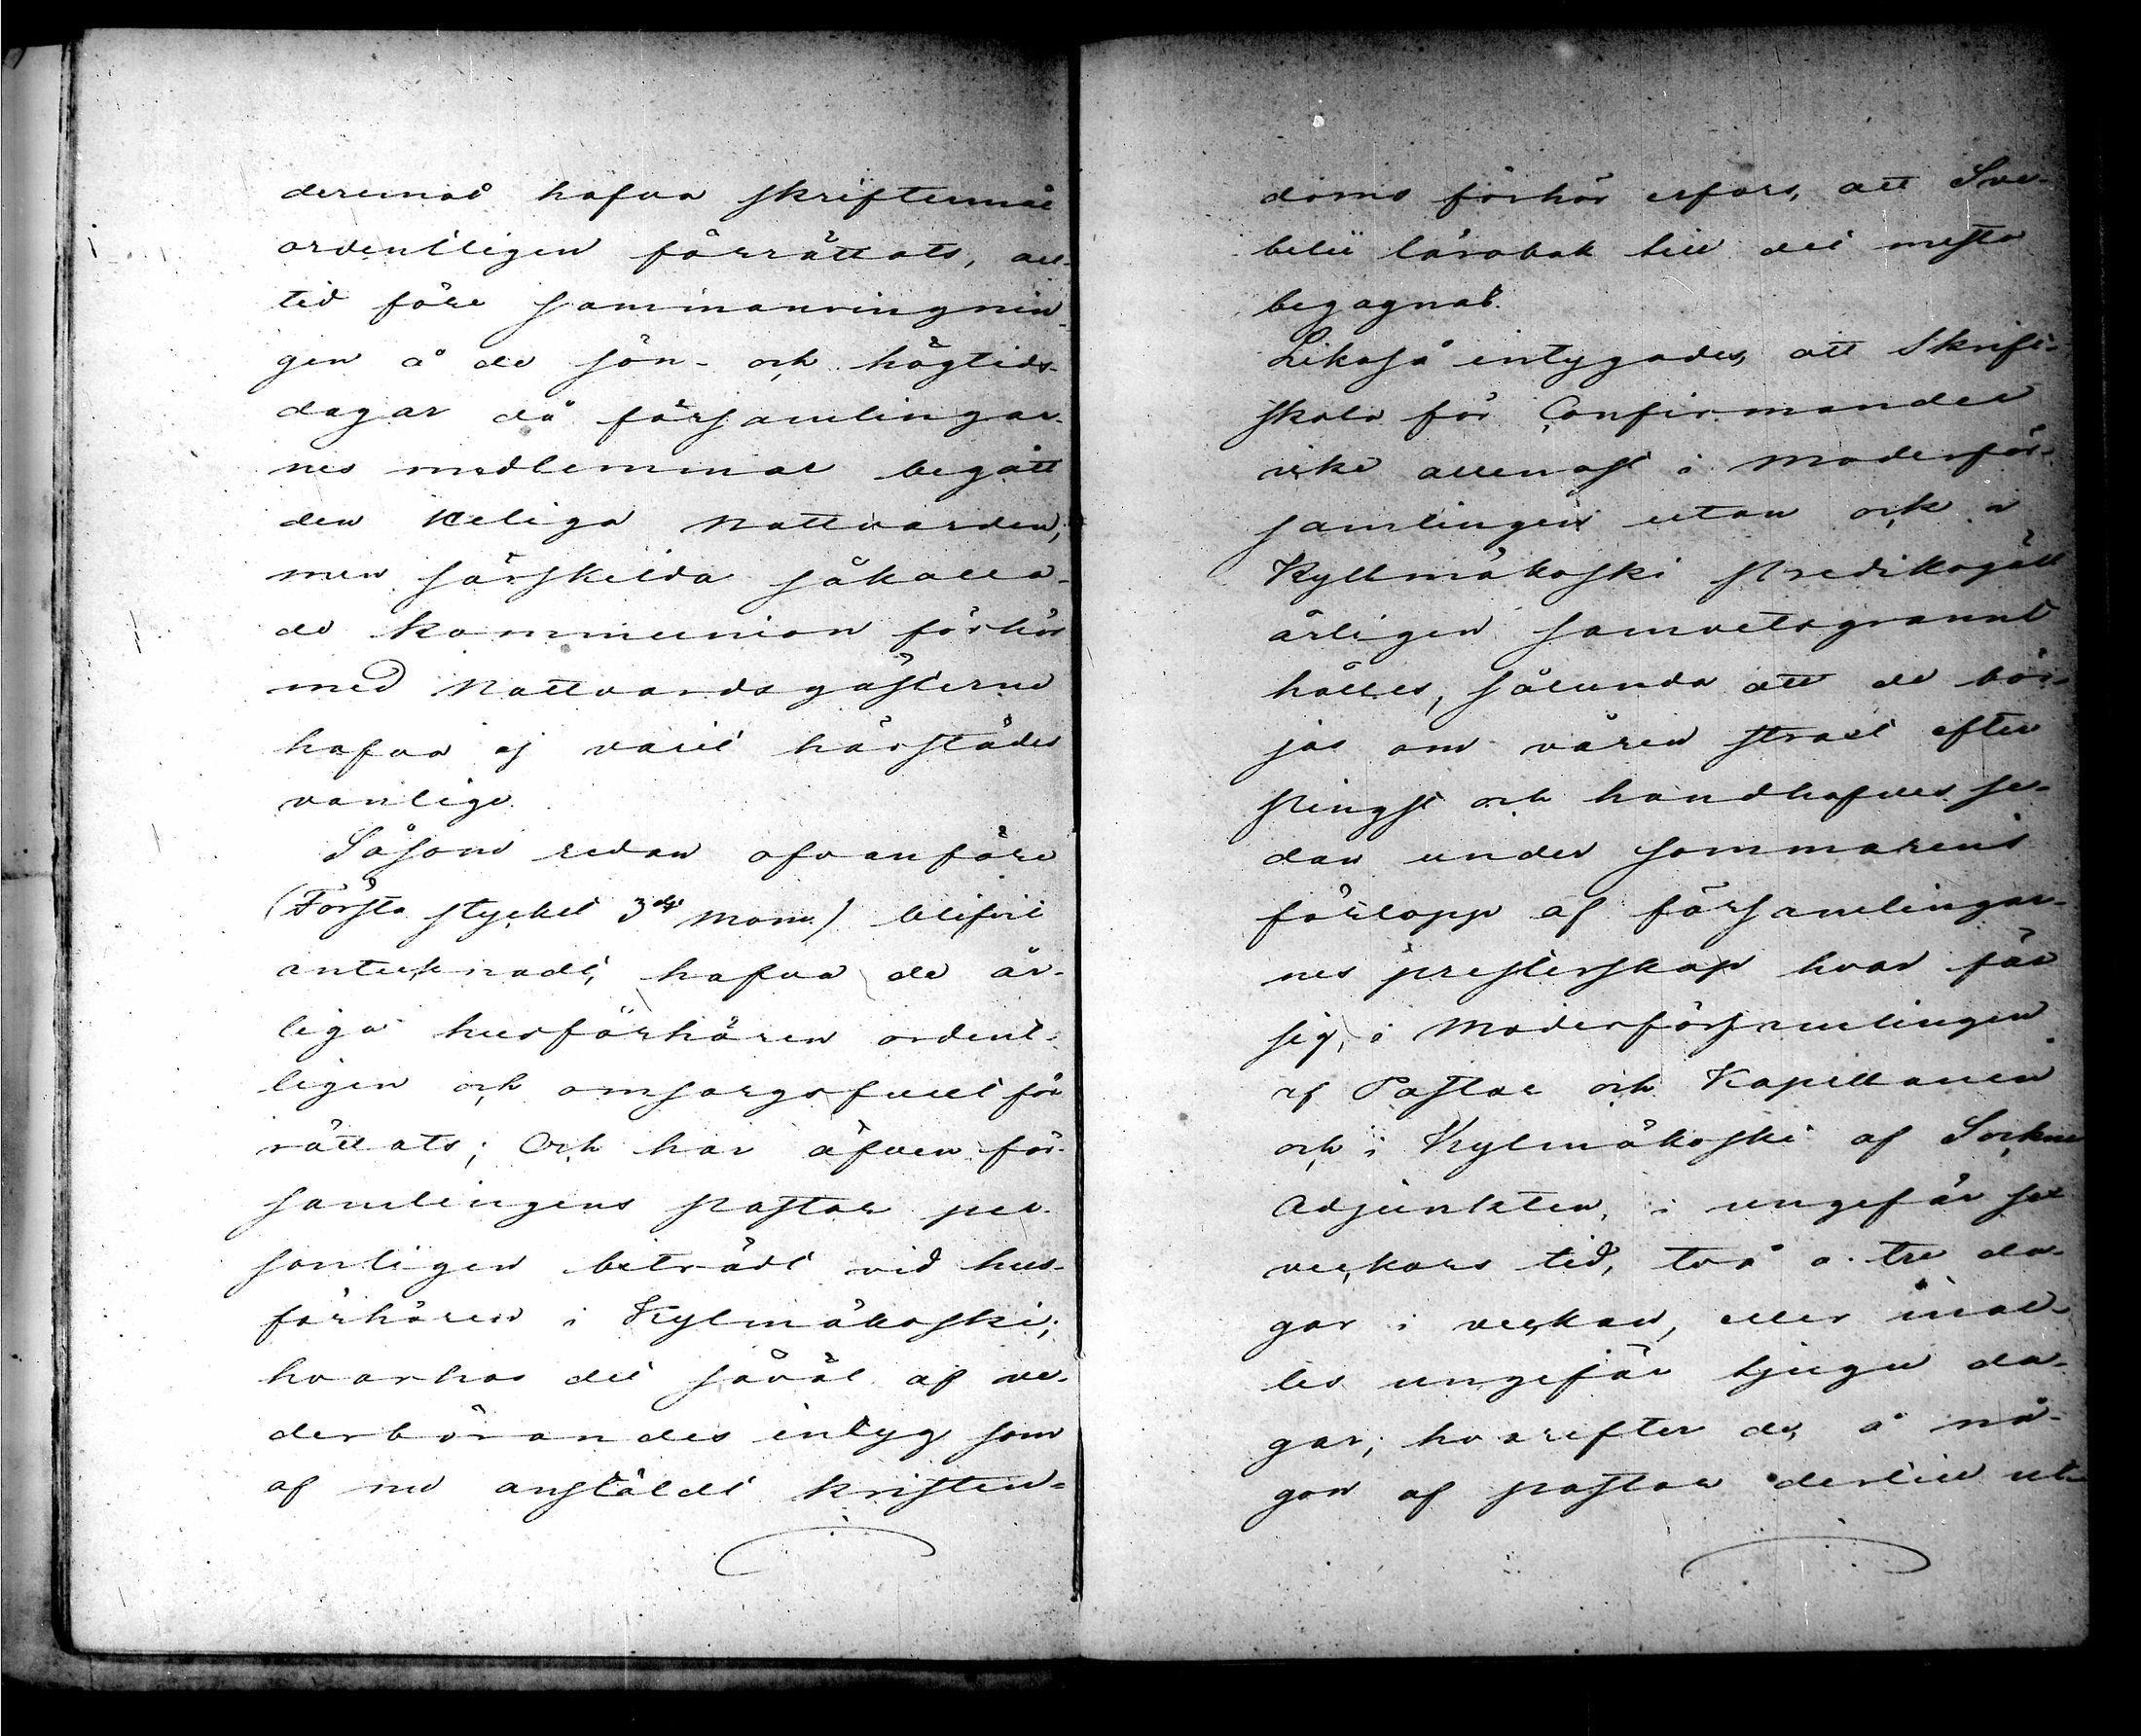 deremot hafva skriftermål
ordentligen förrättats, all-
tid före sammanringnin-
gen å de sön- och högtids-
dagar då församlingar-
nes medlemmar begått
den Heliga Nattvarden;
men särskilda såkalla-
de Kommunion förhör
med Nattvardsgästerne
hafva ej varit härstädes
vanlige.
Såsom redan ofvanföre
(Första stycket 3dje Mom.) blifvit
antecknadt, hafva de år-
liga husförhören ordent-
ligen och omsorgsfullt för
rättats; Och har äfven för-
samlingens pastor per-
sonligen biträdt vid hus-
förhören i Kylmäkoski;
hvarhos det såväl af ve-
derbörandes intyg som
af nu anstäldt kristen-
doms förhör erfors, att Sve-
belii lärobok till det mesta
begagnas.
Likaså intygades, att Skrift-
skola för Confirmander
icke allenast i Moderför-
samlingen utan ock i
Kyllmäkoski predikogäll
årligen samvetsgrannt
hålles, sålunda att de bör-
jas om våren straxt efter
pingst och handhafves se-
dan under sommarens
förlopp af församlingar-
nes presterskap hvar för
sig, i Moderförsamlingen
af Pastor och Kapellanen
och i Kylmäkoski af Sockne
Adjunkten, i ungefär sex
veckors tid, två a tre da-
gar i veckan, eller inal-
les ungefär tjugu da-
gar; hvarefter de, å nå-
gon af pastor dertill ut-